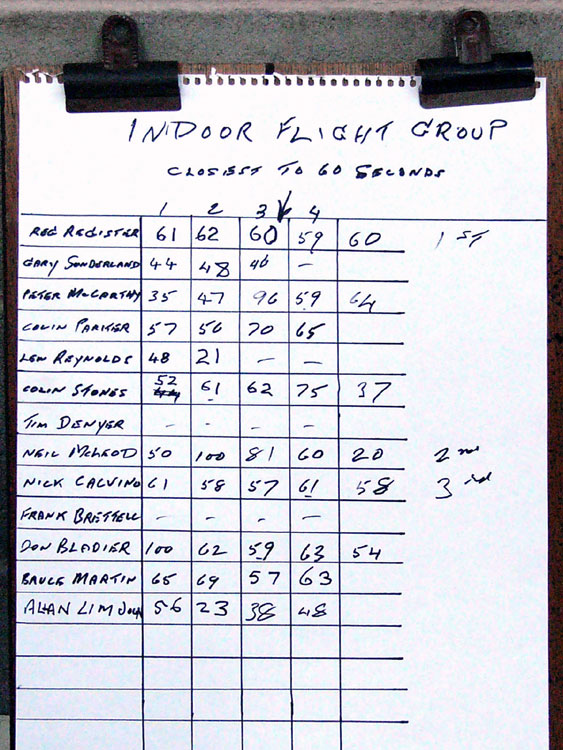 INDOOR FLIGHT GROUP
CLOSEST TO 60 SECONDS
1 2 3 4
REG REGISTER 61 62 60 59 60 1 ST
GARY SUNDERLAND 44 48 46 –
PETER McCARTHY 35 47 96 59 64
COLIN PARKER 57 56 70 65
LEN REYNOLDS 48 21 – –
COLIN STONES 52 61 62 75 37
TIM DENYER – – – –
NEIL McLEOD 50 100 81 60 20 2 nd
NICK CALVINO 61 58 57 61 58 3 rd
FRANK BRETTELL – – – –
DON BLADIER 100 62 59 63 54
BRUCE MARTIN 65 69 57 63
ALAN LIM JOON 56 23 38 48